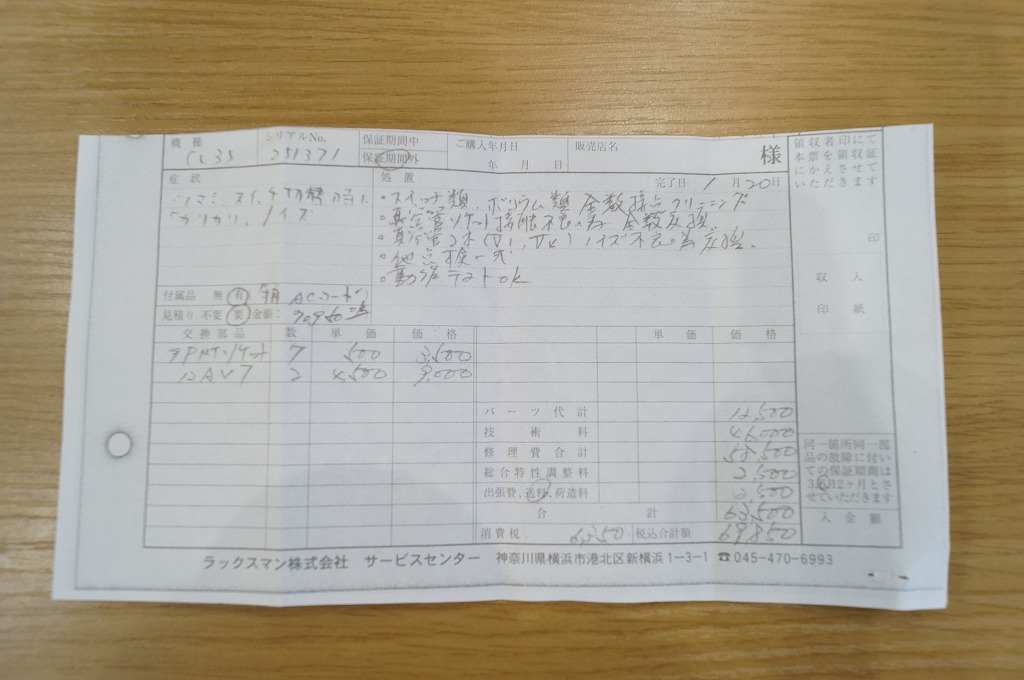 機種 CL35 シリアルNo. 251371 保証期間中 保証期間外 ご購入年月日 年 月 日 販売店名 様
領収者印にて
本票を領収証
にかえさせて
いただきます
印
収入
印紙
症状
ツマミ、スイッチ切替時に
ガリガリ、ノイズ
処置 完了日 1月20日
・スイッチ類、ボリウム類 全数接点クリーニング
・真空管ソケット接触不良の為 全数交換
・真空管2本(V1、V4)ノイズ不良の為交換
・他点検一式
・動作テストOK
付属品 無 有 ACコード
見積り 不要 要 金額:
交換部品 数 単価 価格 単価 価格
9PMTソケット 7 500 3,500
12AX7 2 4,500 9,000
パーツ代計 12,500
技術料 46,000
修理費合計 58,500
総合特性調整料 2,500
出張費、送料、荷造料 2,500
合計 63,500
消費税 6,350 税込合計額 69,850
同一箇所同一部
品の故障に付い
ての保証期間は
3.6.12ヶ月とさ
せていただきます
入金額
ラックスマン株式会社 サービスセンター 神奈川県横浜市港北区新横浜1-3-1 ☎045-470-6993